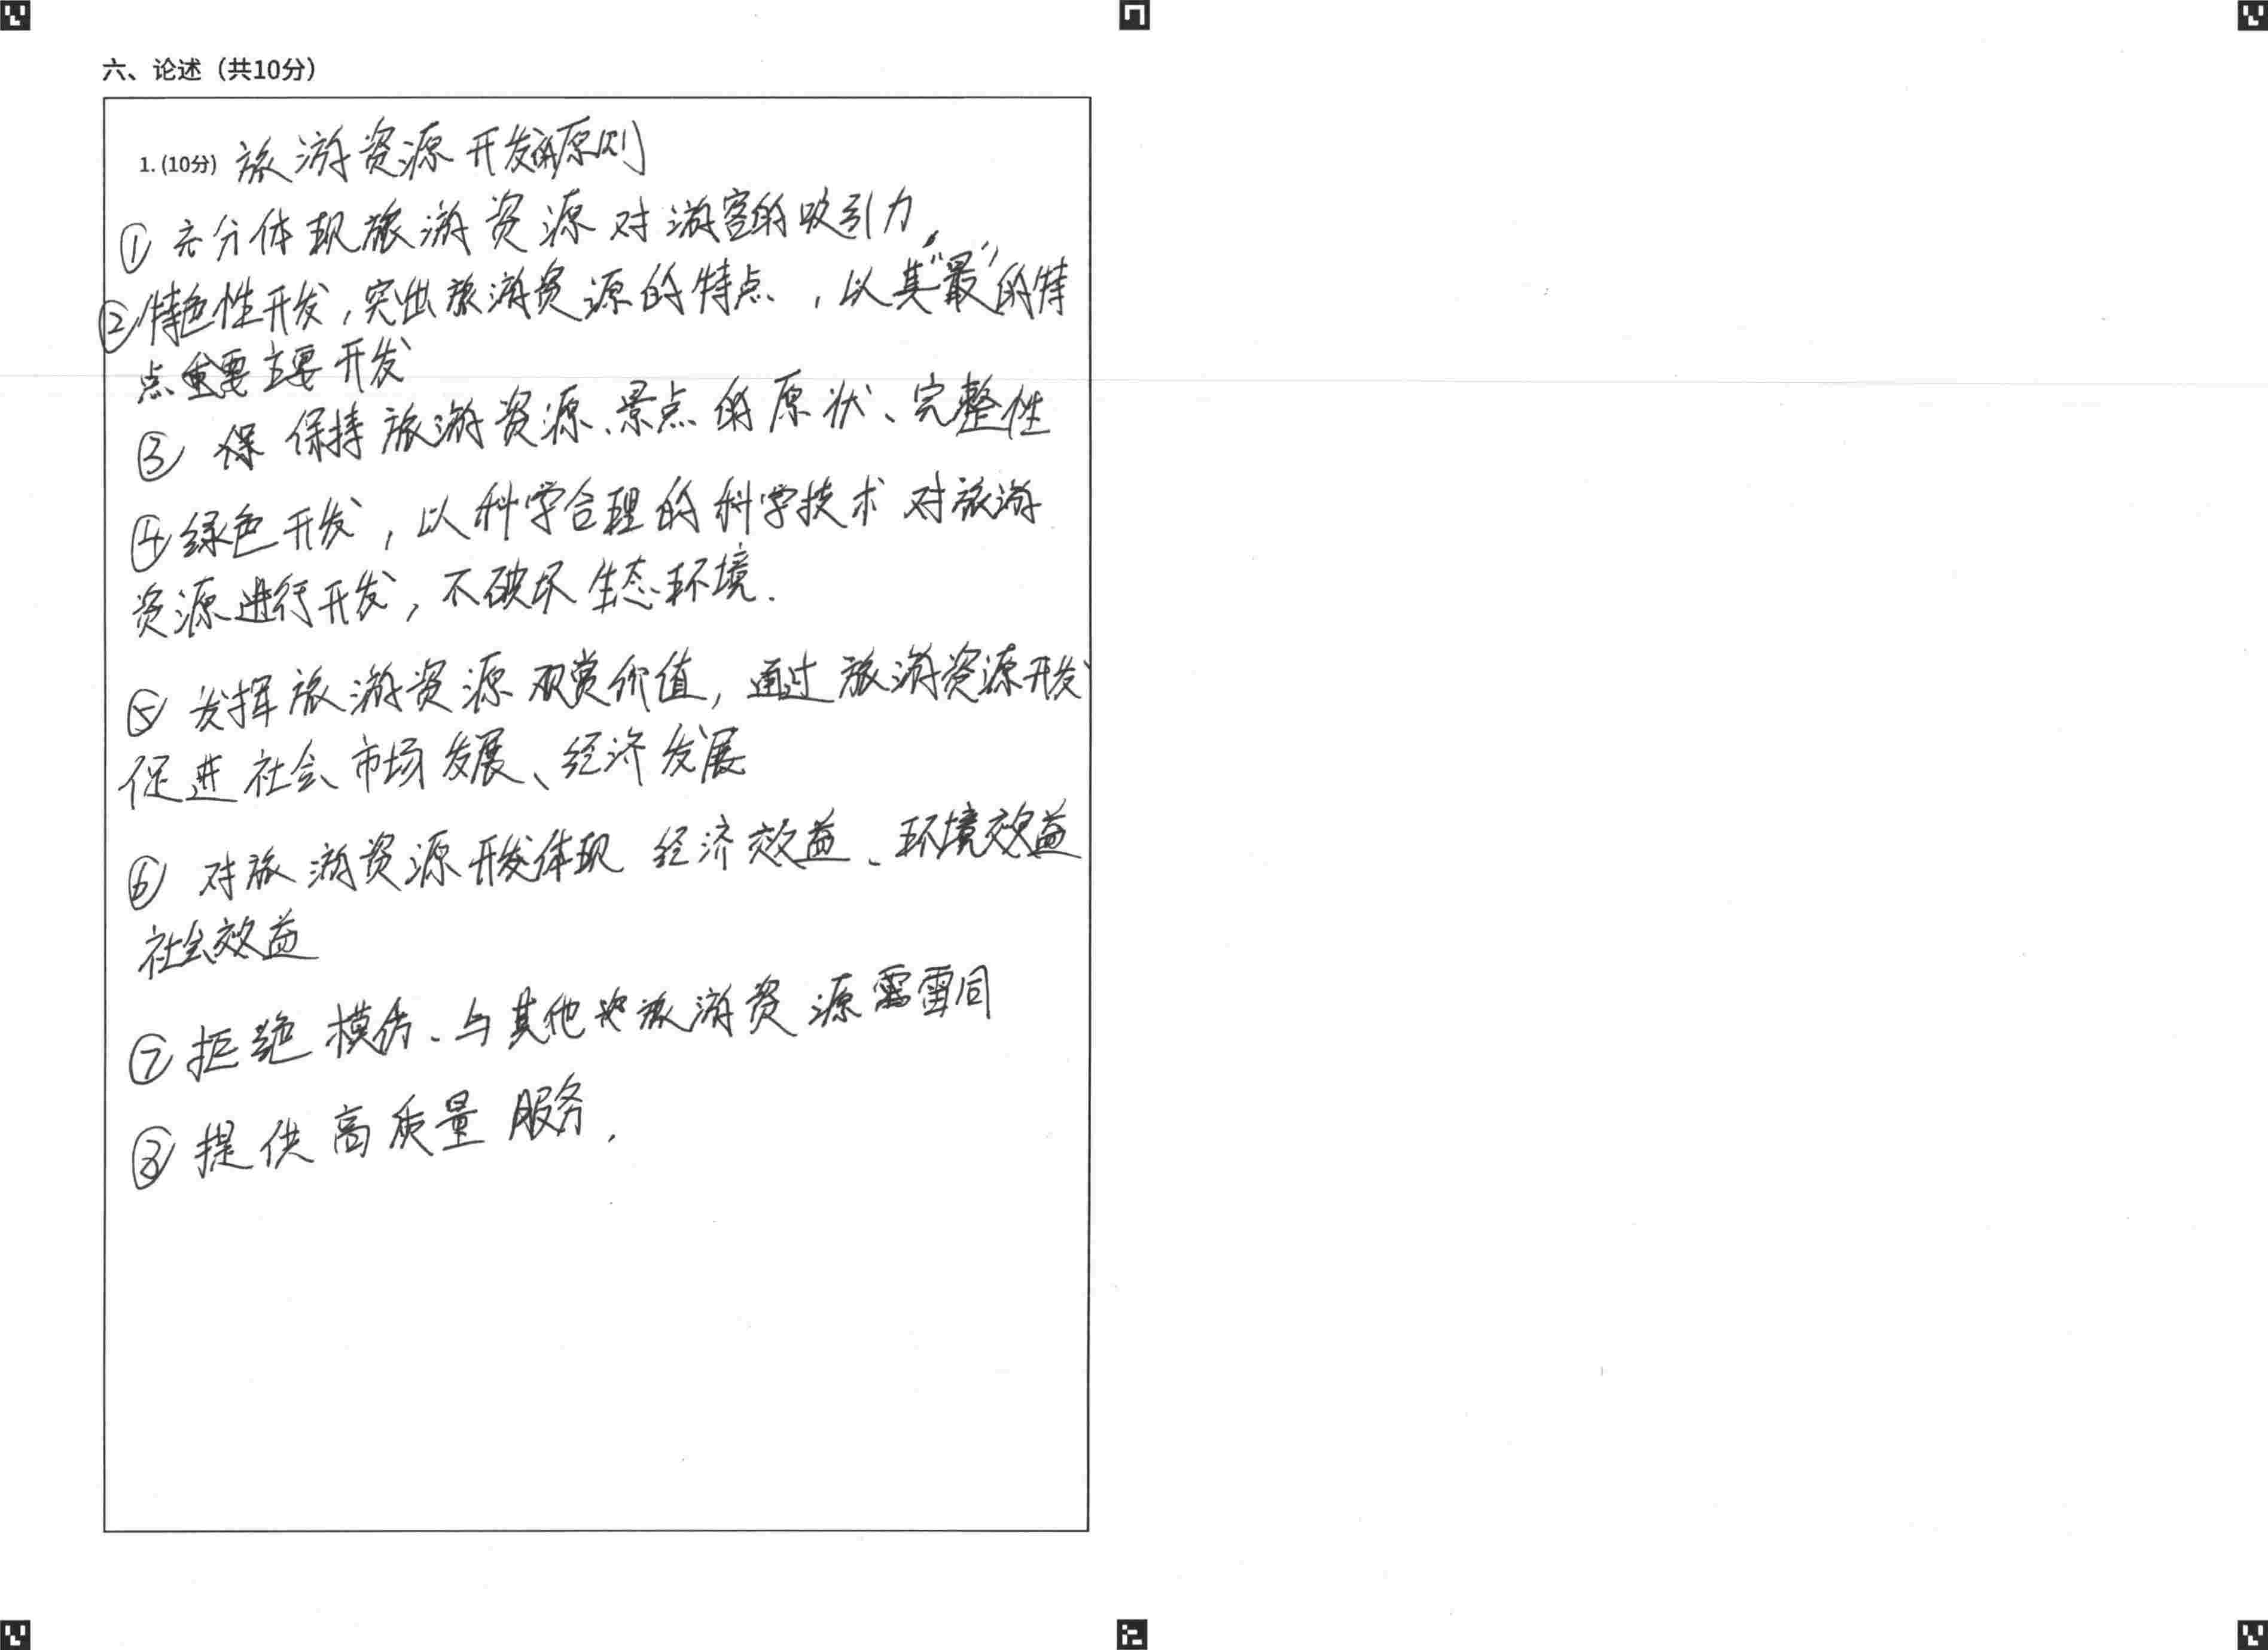 六、论述（共10分）
1. (10分) 旅游资源开发的原则
① 充分体现旅游资源对游客的吸引力，
②特色性开发，突出旅游资源的特点，以其“最”的特
点重要主要开发
③ 保 保持旅游资源、景点的原状、完整性
④绿色开发，以科学合理的科学技术对旅游
资源进行开发，不破坏生态环境.
⑤ 发挥旅游资源观赏价值，通过旅游资源开发
促进社会市场发展、经济发展
⑥ 对旅游资源开发体现 经济效益、环境效益
社会效益
⑦拒绝模仿、与其他旅游资源雷同
⑧提供高质量服务.